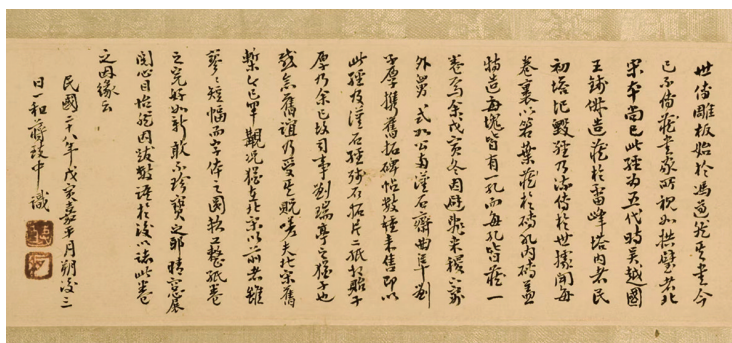 世傳雕板始於馮道然其書今
已不傳藏書家所視如拱璧者北
宋本而已此經為五代時吳越國
王錢俶造藏於雷峰塔內者民
初塔圮毀經乃流傳於世據聞每
卷裹以箬葉藏於磚孔內磚蓋
特造每塊皆有一孔而每孔皆藏一
卷焉余戊寅冬因避難來稷寓
外舅式如公漢石齋曲阜劉
子厚攜舊拓碑帖數種來售即以
此經及漢石經殘石拓片二紙相貽子
厚乃余已故同事劉瑞亭之猶子也
念舊誼乃受其貺嗟夫北宋舊
槧今已罕覯況猶在北宋以前者雖
寥寥短幅而字体之圓軟工整紙卷
之完好如新敢不珍寶之耶晴窗展
閱心目怡然因跋數語於後以誌此卷
之因緣云
民國二十八年戊寅嘉平月朔後三
日一和齋致中識